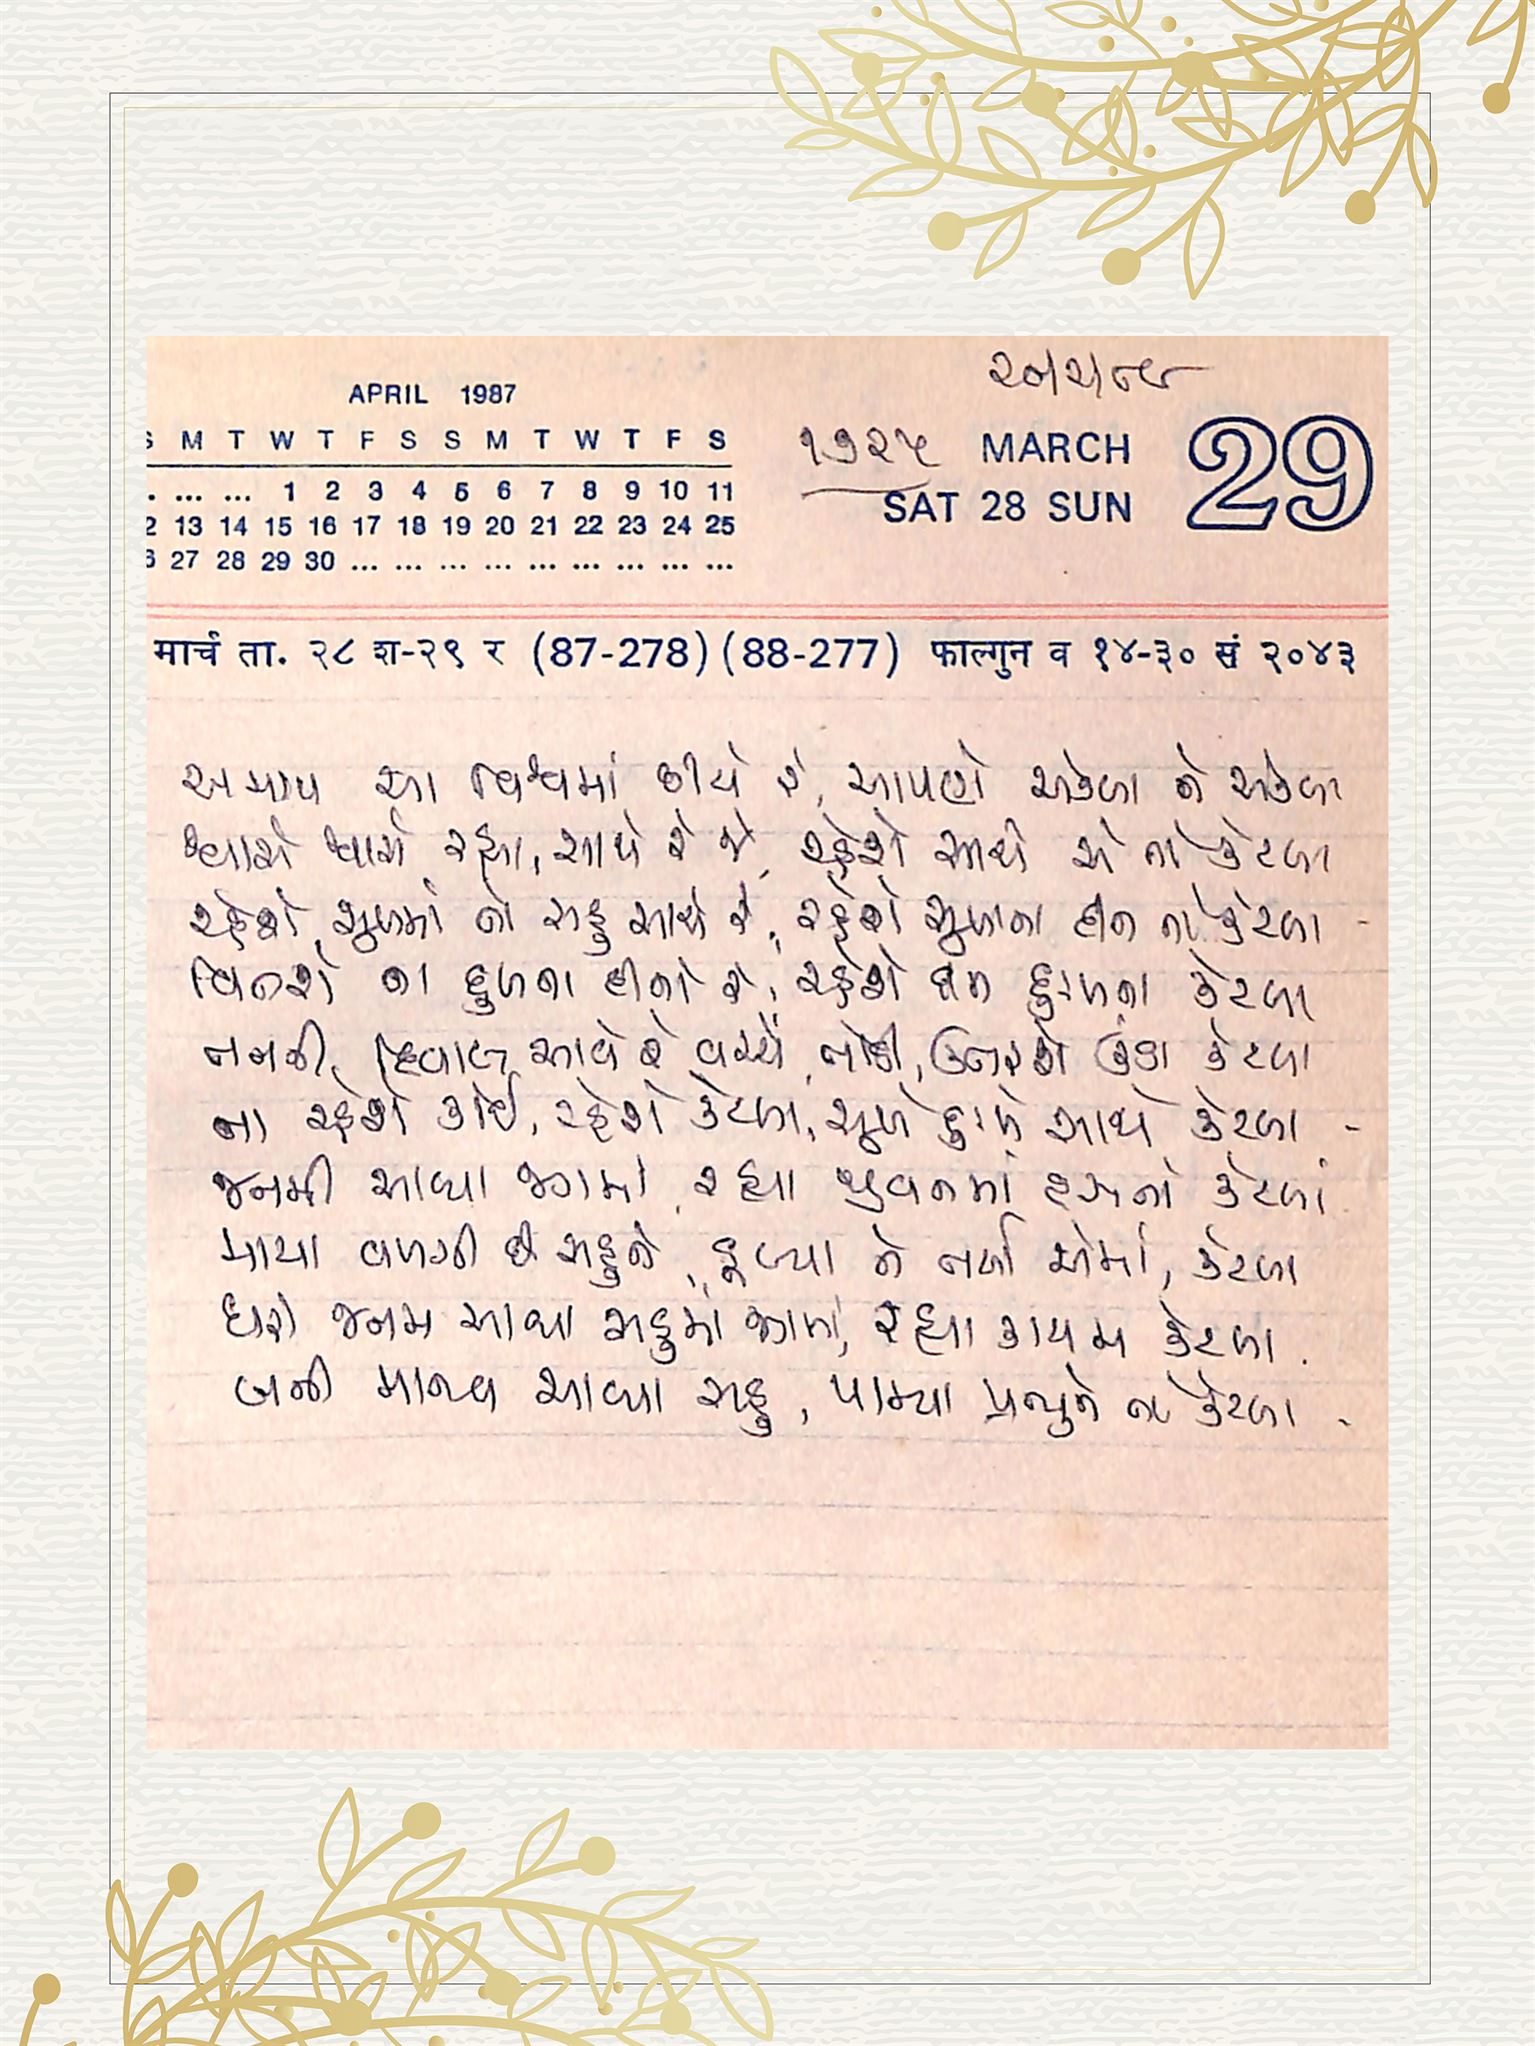 ૨૮/૨/૮૯
APRIL 1987
S M T W T F S S M T W T F S
. ... ... 1 2 3 4 5 6 7 8 9 10 11
2 13 14 15 16 17 18 19 20 21 22 23 24 25
6 27 28 29 30 ... ... ... ... ... ... ... ... ...
૧૭૨૫ MARCH 29
SAT 28 SUN
मार्च ता. २८ श-२९ र (87-278) (88-277) फाल्गुन व १४-३० सं २०४३
અસહાય આ વિશ્વમાં છીયે રે, આપણે એકલા ને એકલા
શ્વાસે શ્વાસે રહ્યા, સાથે રે જે, રહેશે સાથે એ તો કેટલા
રહેશે સુખમાં તો સહુ સાથે રે, રહેશે સુખના દીન તો કેટલા -
વિતશે ના દુઃખના દીનો રે, રહેશે દીન દુઃખના કેટલા
નમની, દિવાલ આવે રે વચ્ચે તોડી, ઉતરશે ઊંડા કેટલા
ના રહેશે કોઈ, રહેશે કેટલા, સુખે દુઃખે સાથે કેટલા -
જનમી આવ્યા જગમાં, રહ્યા જીવનમાં હસતા કેટલાં
માયા વળગી છે સહુને, ડૂબ્યા ને તર્યા એમાં, કેટલા
ધરી જનમ આવ્યા સહુમાં જગમાં, રહ્યા કાયમ કેટલા.
બની માનવ આવ્યા સહુ, પામ્યા પ્રભુને તો કેટલા -